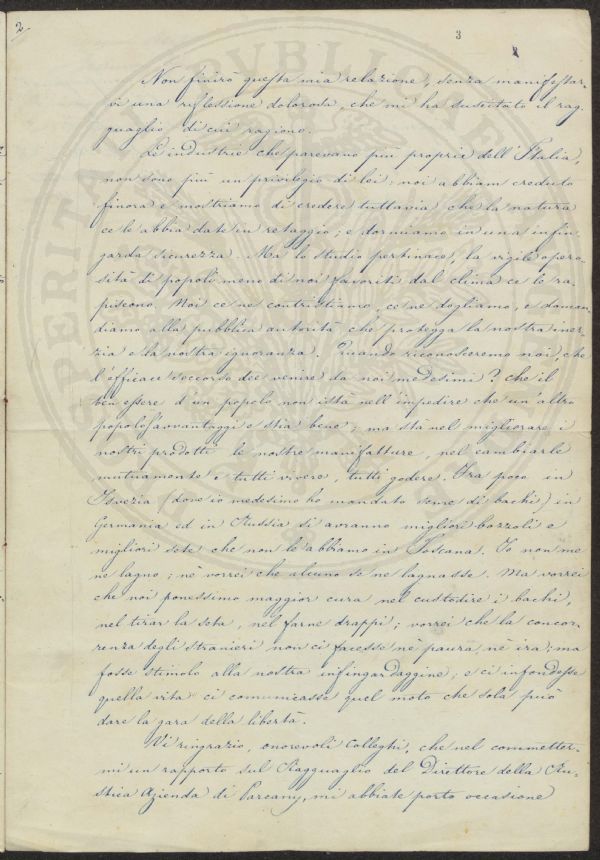 2
3
Non finirò questa mia relazione, senza manifestar-
vi una riflessione dolorosa, che mi ha suscitato il rag-
guaglio di cui ragiono.
Le industrie che parevano più proprie dell'Italia,
non sono più un privilegio di lei: noi abbiam creduto
finora e mostriamo di credere tuttavia che la natura
ce le abbia date in retaggio; e dormiamo in una infin-
garda sicurezza. Ma lo studio pertinace, la vigile opero-
sità di popoli meno di noi favoriti dal clima ce le ra-
piscono. Noi ce ne contristiamo, ce ne dogliamo, e doman-
diamo alla pubblica autorità che protegga la nostra iner-
zia e la nostra ignoranza. Quando riconosceremo noi, che
l'efficace soccorso dee venire da noi medesimi? che il
ben essere d'un popolo non istà nell'impedire che un'altro
popolo s'avvantaggi e stia bene; ma sta nel migliorare i
nostri prodotti le nostre manifatture, nel cambiarle
mutuamente e tutti vivere, tutti godere. Fra poco in
Isvezia (dove io medesimo ho mandato seme di bachi) in
Germania ed in Russia si avranno migliori bozzoli e
migliori sete che non le abbiamo in Toscana. Io non me
ne lagno; nè vorrei che alcuno se ne lagnasse. Ma vorrei
che noi ponessimo maggior cura nel custodire i bachi,
nel tirar la seta, nel farne drappi; vorrei che la concor-
renza degli stranieri non ci facesse nè paura, nè ira; ma
fosse stimolo alla nostra infingardaggine; e ci infondesse
quella vita ci comunicasse quel moto che sola può
dare la gara della libertà.
Vi ringrazio, onorevoli Colleghi, che nel commetter-
mi un rapporto sul Ragguaglio del Direttore della Ru-
stica Azienda di Parcany, mi abbiate porto occasione